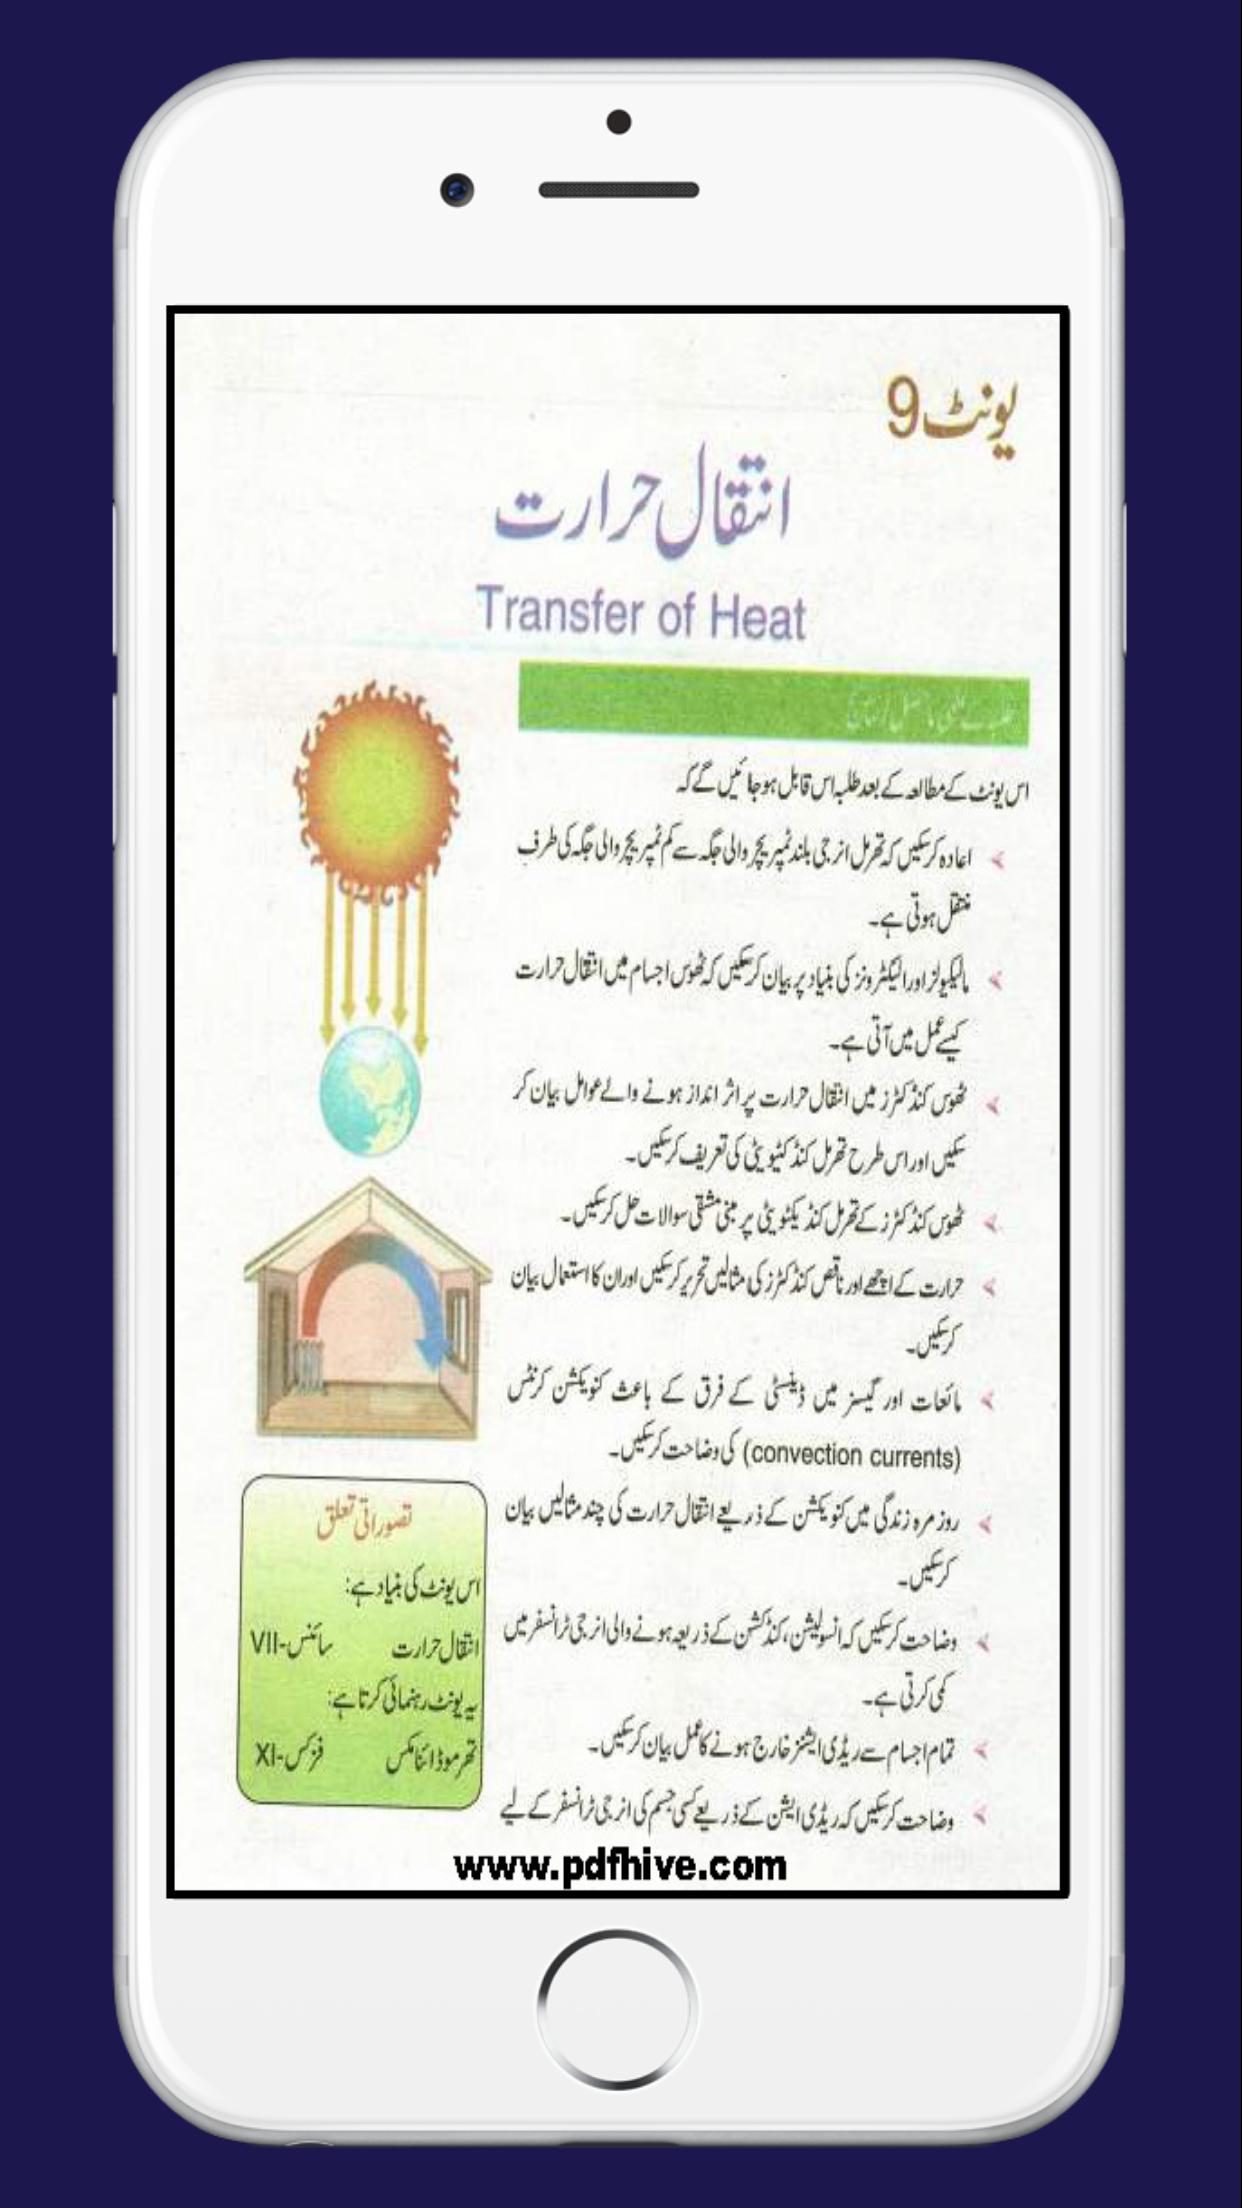 یونٹ 9
انتقال حرارت
Transfer of Heat
اس یونٹ کے مطالعہ کے بعد طلبہ اس قابل ہو جائیں گے کہ
اعادہ کر سکیں کہ تھرمل انرجی بلند ٹمپریچر والی جگہ سے کم ٹمپریچر والی جگہ کی طرف
منتقل ہوتی ہے۔
مالیکیولز اور الیکٹرونز کی بنیاد پر بیان کر سکیں کہ ٹھوس اجسام میں انتقال حرارت
کیسے عمل میں آتی ہے۔
ٹھوس کنڈکٹرز میں انتقال حرارت پر اثر انداز ہونے والے عوامل بیان کر
سکیں اور اس طرح تھرمل کنڈکٹیویٹی کی تعریف کر سکیں۔
ٹھوس کنڈکٹرز کے تھرمل کنڈیکٹویٹی پر مبنی مشقی سوالات حل کر سکیں۔
حرارت کے اچھے اور ناقص کنڈکٹرز کی مثالیں تحریر کر سکیں اور ان کا استعمال بیان
کر سکیں۔
مائعات اور گیسز میں ڈینسٹی کے فرق کے باعث کنویکشن کرنٹس
(convection currents) کی وضاحت کر سکیں۔
روزمرہ زندگی میں کنویکشن کے ذریعے انتقال حرارت کی چند مثالیں بیان
کر سکیں۔
وضاحت کر سکیں کہ انسولیشن، کنڈکشن کے ذریعہ ہونے والی انرجی ٹرانسفر میں
کمی کرتی ہے۔
تمام اجسام سے ریڈی ایشنز خارج ہونے کا عمل بیان کر سکیں۔
وضاحت کر سکیں کہ ریڈی ایشن کے ذریعے کسی جسم کی انرجی ٹرانسفر کے لیے
تصوراتی تعلق
اس یونٹ کی بنیاد ہے:
انتقال حرارت سائنس-VII
یہ یونٹ رہنمائی کرتا ہے:
تھرموڈائنامکس فزکس-XI
www.pdfhive.com